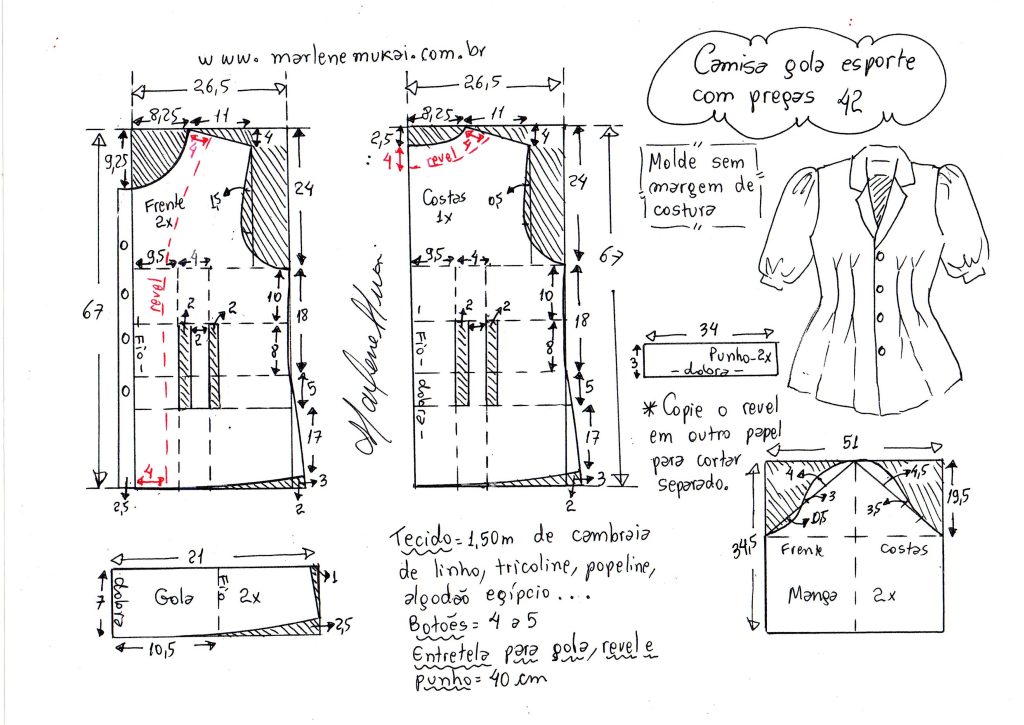 www.marlenemukai.com.br
Camisa gola esporte
com pregas 42
26,5
8,25
11
4
9,25
4
24
Frente
2x
1,5
9,5
4
revel
67
10
18
2
2
2
8
Fio
5
17
4
2,5
3
2
Marlene Mukai
26,5
8,25
11
2,5
4
4
revel
24
Costas
1x
0,5
67
9,5
4
10
18
2
2
8
- Fio - dobra -
5
17
3
2
Molde sem
margem de
costura
34
3
Punho-2x
- dobra -
* Copie o revel
em outro papel
para cortar
separado.
51
4
4,5
3
3,5
0,5
19,5
34,5
Frente
Costas
Manga 2x
21
7
dobra
Gola
Fio
2x
1
2,5
10,5
Tecido = 1,50m de cambraia
de linho, tricoline, popeline,
algodão egípcio ....
Botões = 4 a 5
Entretela para gola, revel e
punho = 40 cm